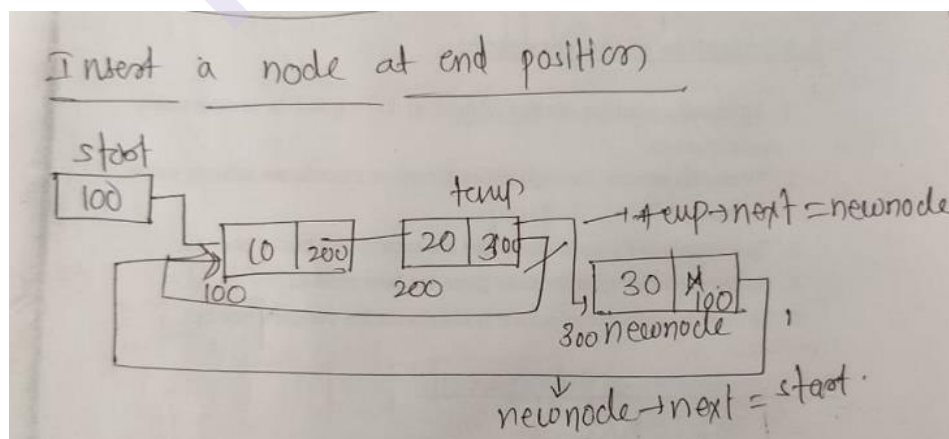 Insert a node at end position
start
100
temp
temp→next = newnode
10 200 20 300
100 200
30 N 100
300 newnode
newnode→next = start.